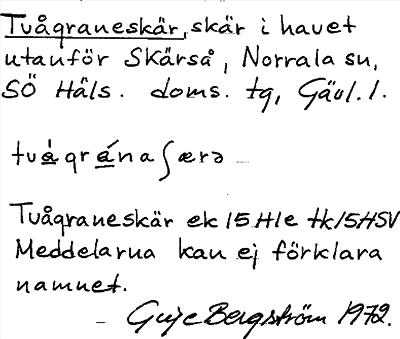 Tvågraneskär, skär i havet
utanför Skärså, Norrala sn,
SÖ Häls. doms. tg, Gävl. l.
tvágránaʃærə
Tvågraneskär ek 15 H1e tk 15HSV
Meddelarna kan ej förklara
namnet.
– Bergström 1972.